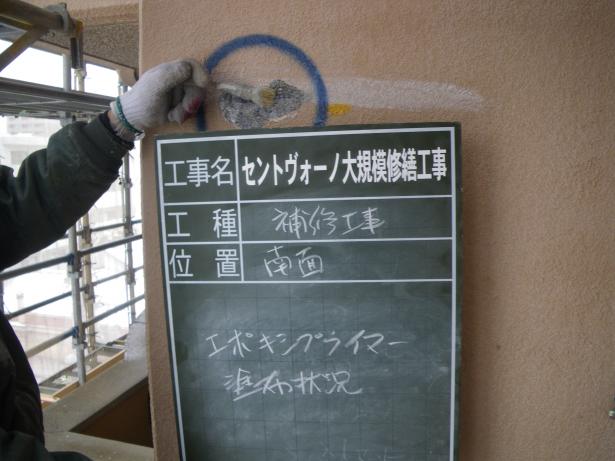 工事名 セントヴォーノ大規模修繕工事
工種 補修工事
位置 南面
エポキシプライマー
塗布状況